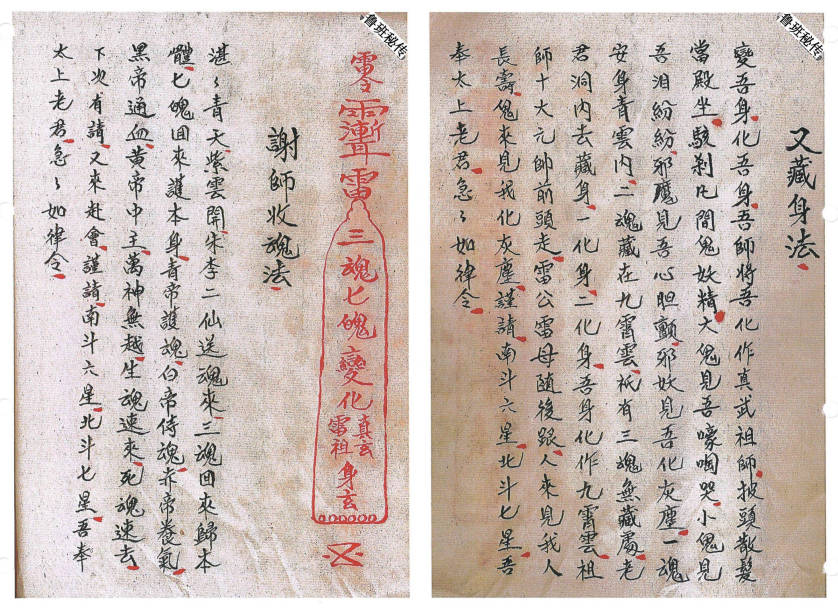 魯班秘传
又藏身法
變吾身化吾身吾師將吾化作真武祖師披頭散髮
當殿坐駭剎凡間鬼妖精大鬼見吾嚎啕哭小鬼見
吾泪紛紛邪魔見吾心胆顫邪妖見吾化灰塵一魂
安身青雲内二魂藏在九霄雲祇有三魂無藏處老
君洞内去藏身一化身二化身吾身化作九霄雲祖
師十大元帥前頭走雷公雷母随後跟人來見我人
長壽鬼來見我化灰塵謹請南斗六星北斗七星吾
奉太上老君急々如律令
魯班秘传
雷
三魂七魄變化
真玄
雷祖
身玄
謝師收魂法
湛々青天紫雲開宋李二仙送魂來三魂回來歸本
體七魄回來護本身青帝護魂白帝侍魂赤帝養氣
黑帝通血黄帝中主萬神無越生魂速來死魂速去
下次有請又來赴會謹請南斗六星北斗七星吾奉
太上老君急々如律令